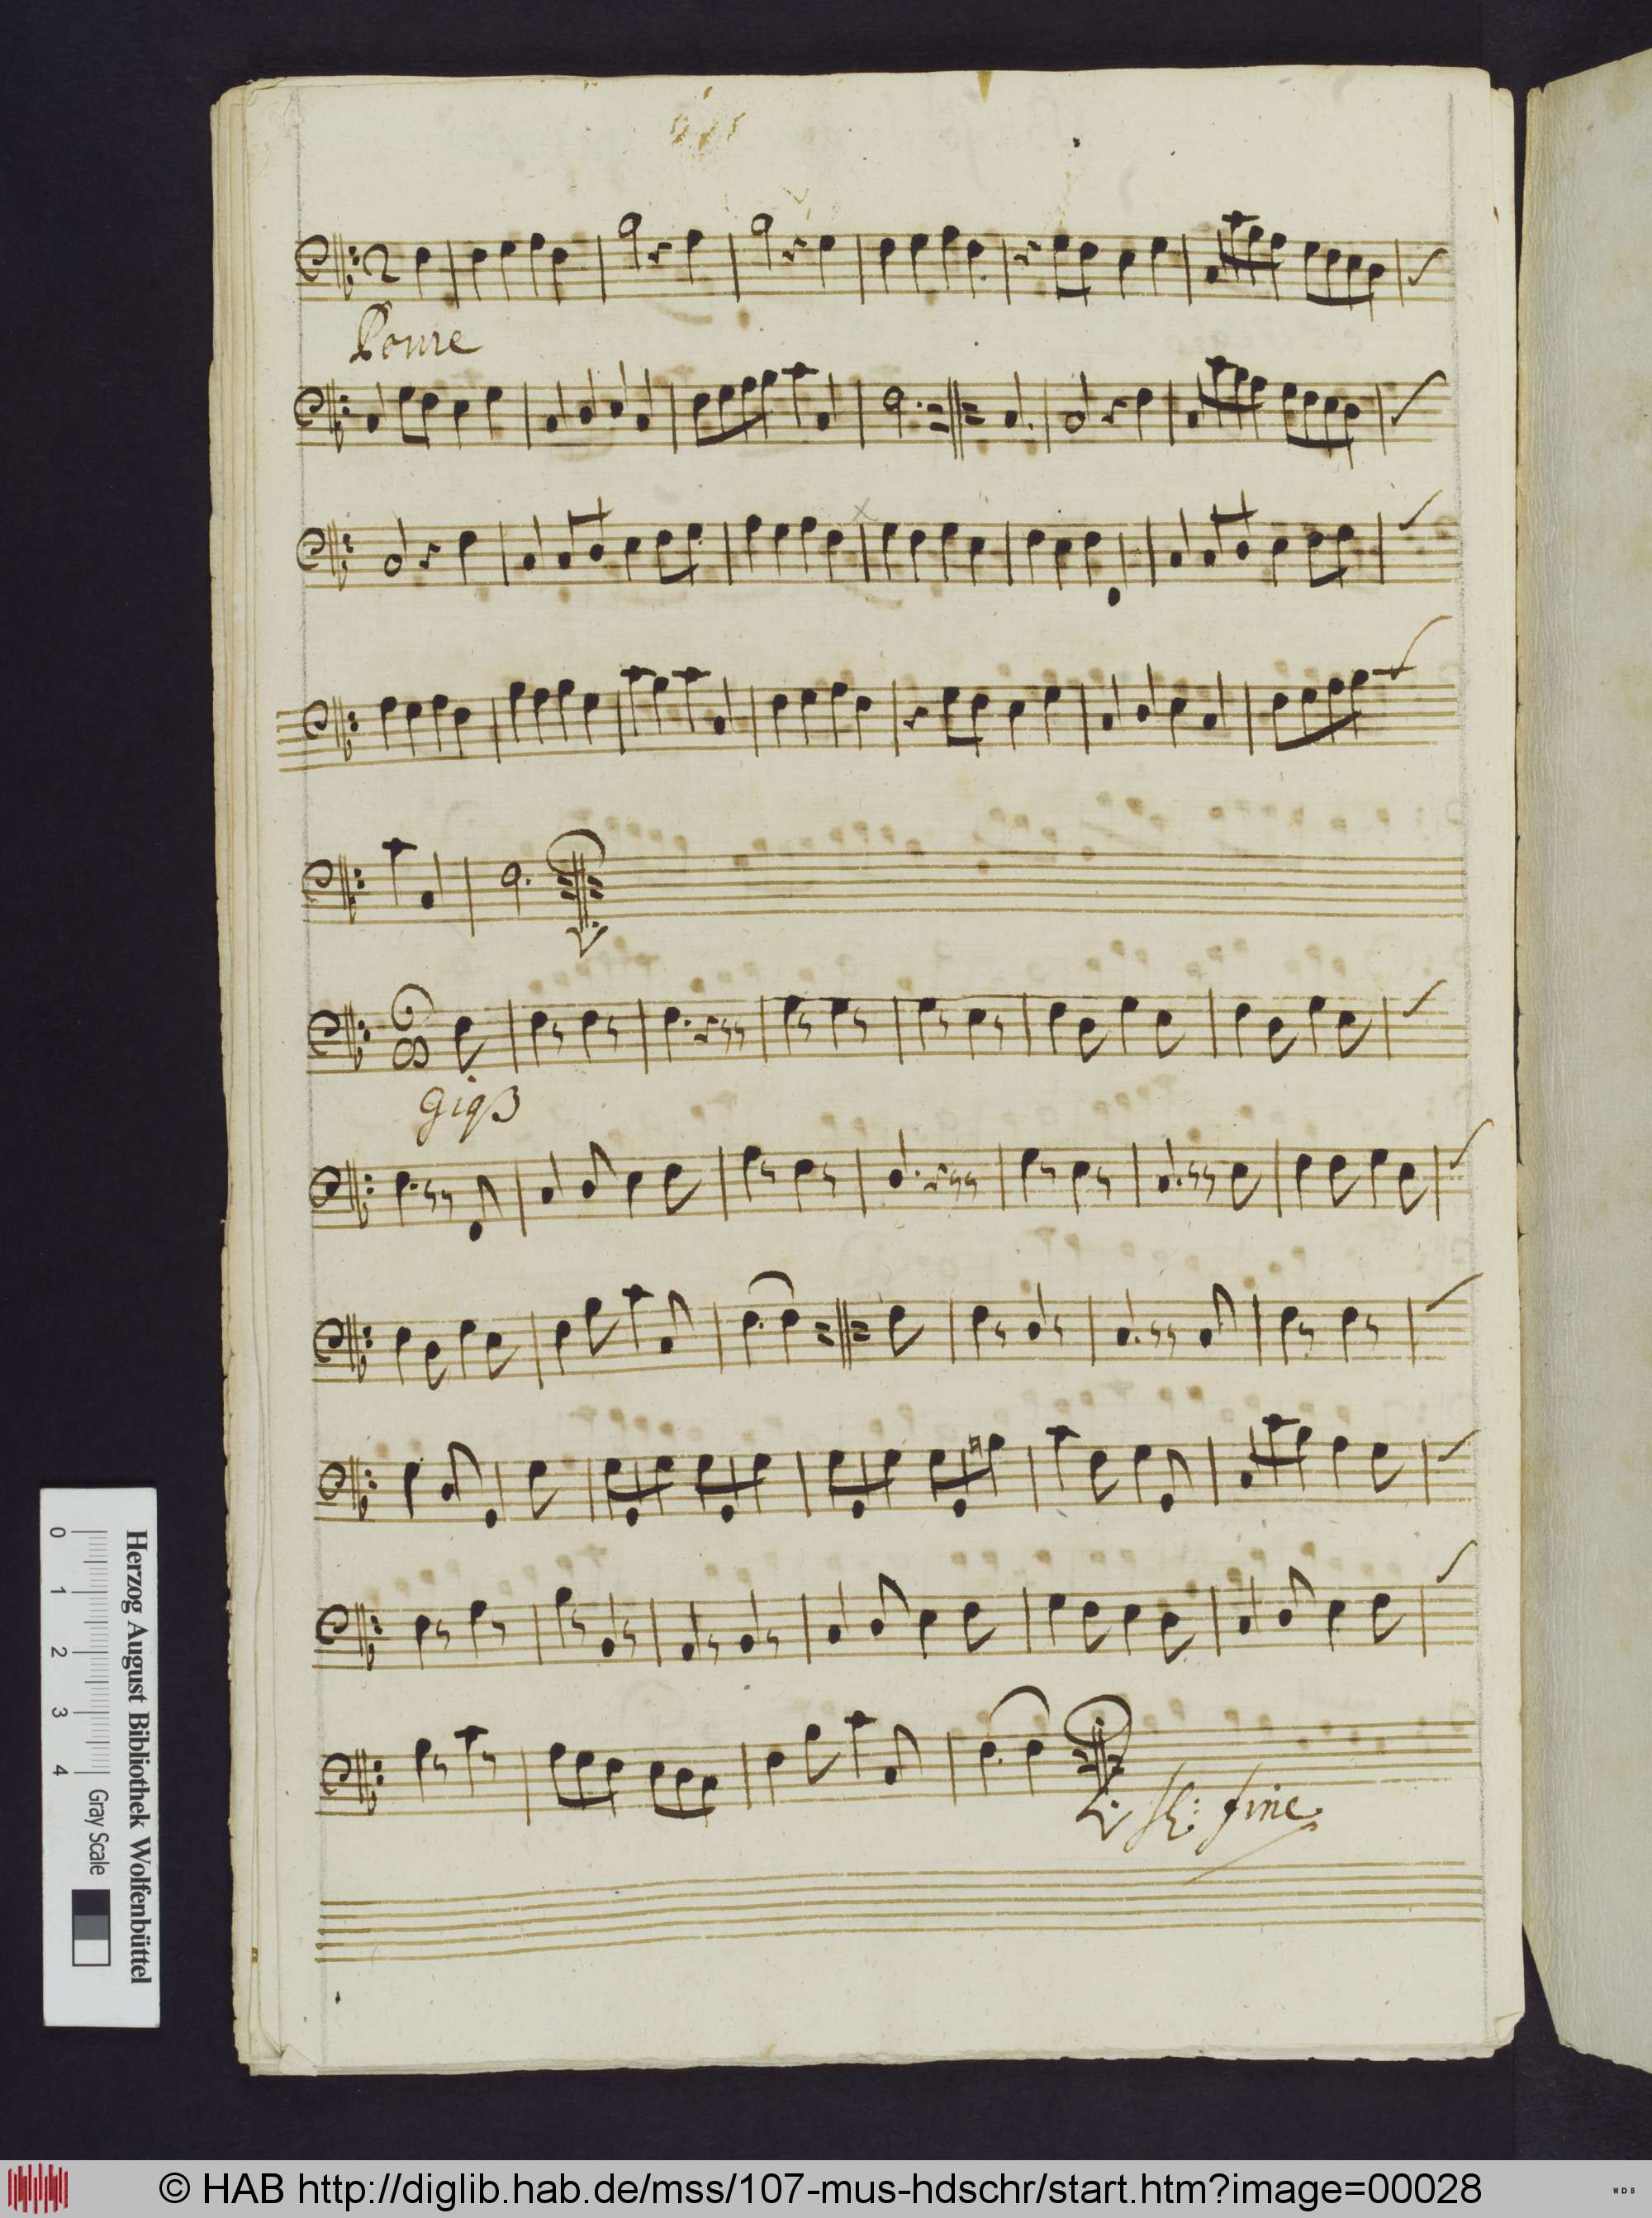 2
Boure
8
gigß
fine
0 1 2 3 4
Herzog August Bibliothek Wolfenbüttel
Gray Scale
© HAB http://diglib.hab.de/mss/107-mus-hdschr/start.htm?image=00028
WDB